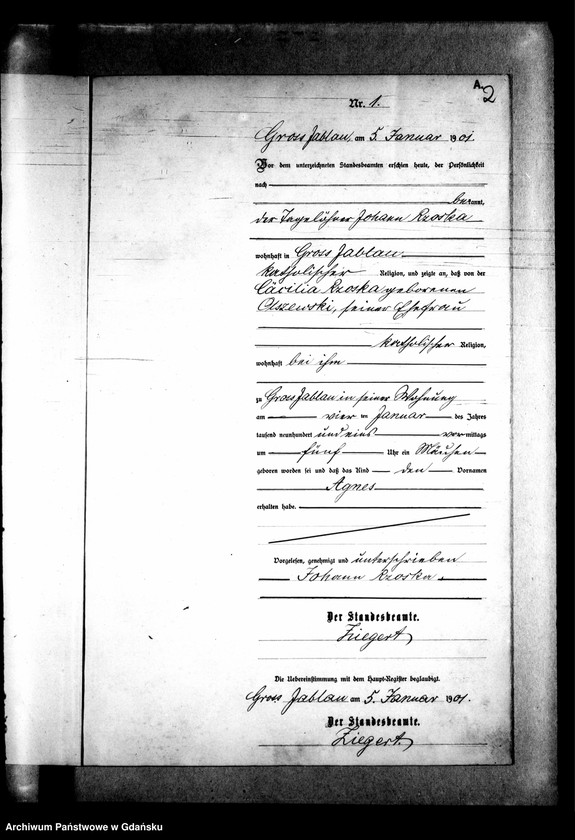 A.
2
Nr. 1.
Gross Jablau, am 5. Januar 1901.
Vor dem unterzeichneten Standesbeamten erschien heute, der Persönlichkeit
nach
bekannt,
der Tagelöhner Johann Rzoska
wohnhaft in Gross Jablau
katholischer Religion, und zeigte an, daß von der
Cäcilia Rzoska geborenen
Olszewski, seiner Ehefrau
katholischer Religion,
wohnhaft bei ihm
zu Gross Jablau in seiner Wohnung
am vier ten Januar des Jahres
tausend neunhundert und eins vormittags
um fünf Uhr ein Mädchen
geboren worden sei und daß das Kind den Vornamen
Agnes
erhalten habe.
Vorgelesen, genehmigt und unterschrieben
Johann Rzoska.
Der Standesbeamte.
Ziegert
Die Uebereinstimmung mit dem Haupt-Register beglaubigt.
Gross Jablau am 5. Januar 1901.
Der Standesbeamte.
Ziegert.
Archiwum Państwowe w Gdańsku